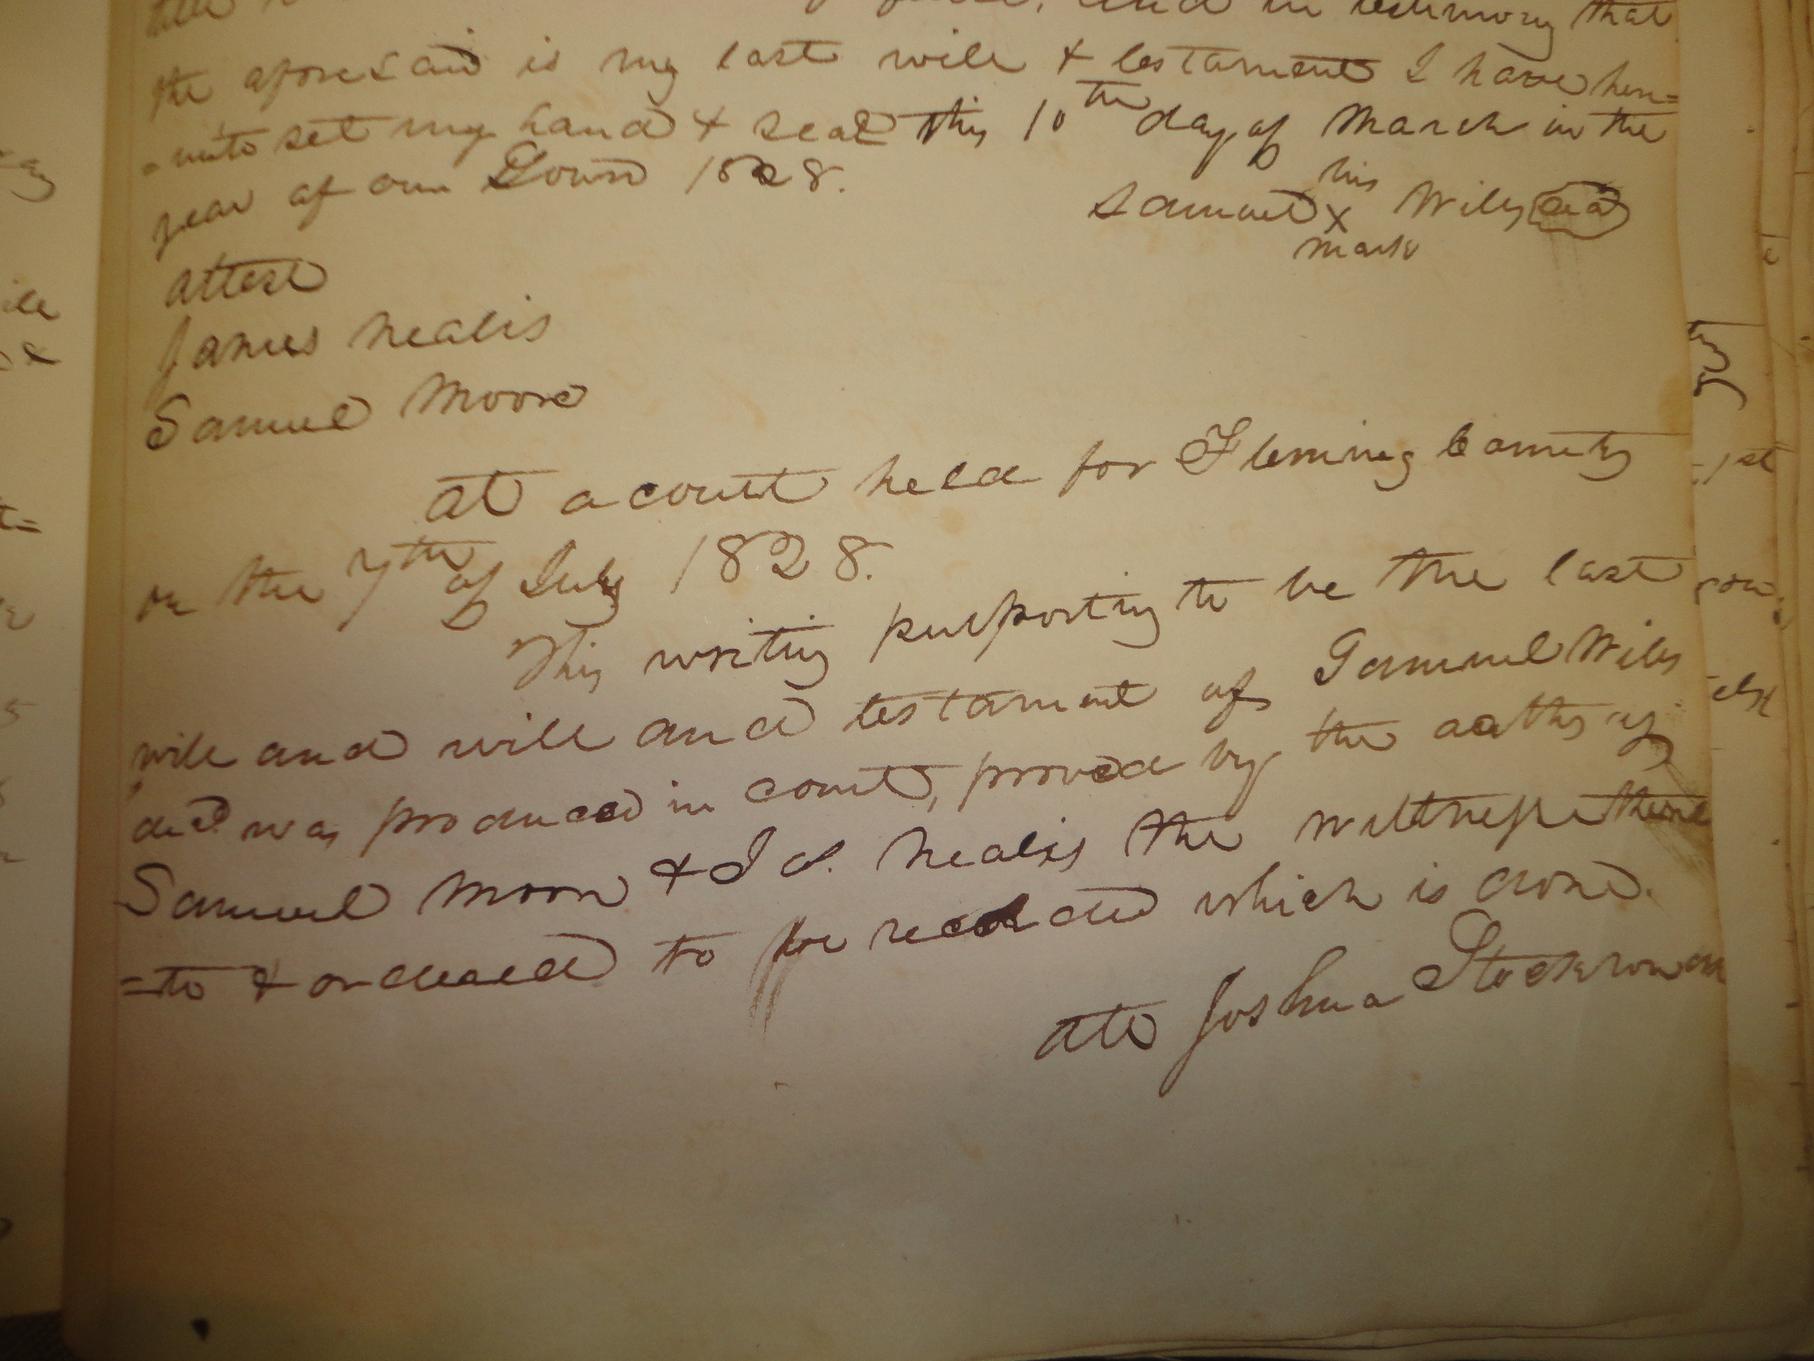 and in testimony that
the aforesaid is my last will & testament I have here=
=unto set my hand & seal this 10th day of March in the
year of our Lord 1828.
his
Samuel X Wiles seal
mark
attest
James Nealis
Samuel Moore
At a court held for Fleming County
on the 7th of July 1828.
This writing purporting to be the last
will and will and testament of Samuel Wiles
decd was produced in court, proved by the oaths of
Samuel Moore & Nealis the witnesses there
=to & ordered to be recorded which is done.
att Joshua Stockton